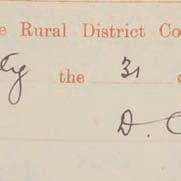 e Rural District Co
ty the 31
D. C